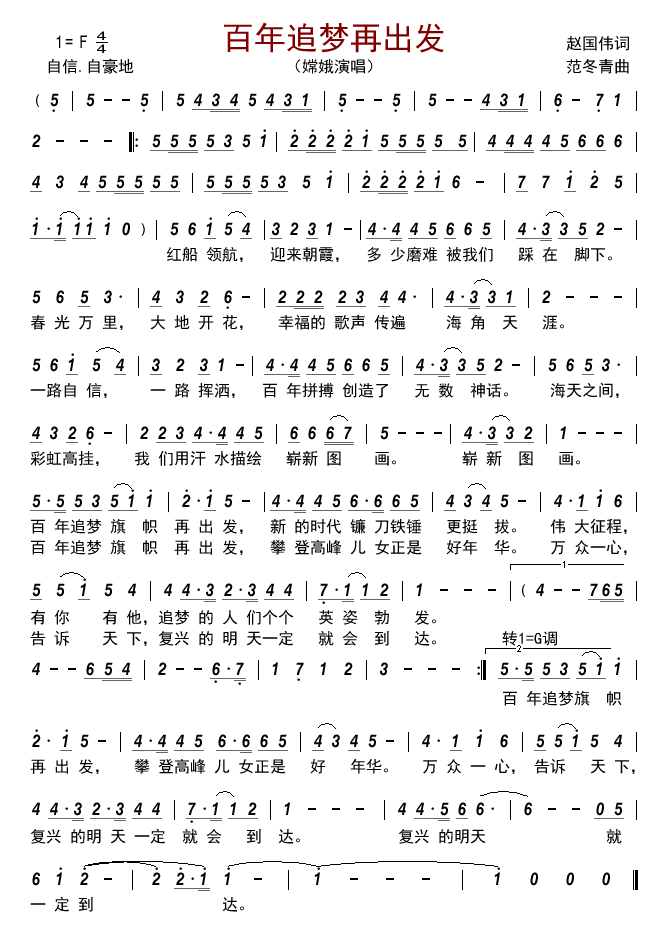 百年追梦再出发
1= F 4/4
自信.自豪地
（嫦娥演唱）
赵国伟词
范冬青曲
( 5 | 5 - - 5 | 5 4 3 4 5 4 3 1 | 5 - 5 - | 5 - - 4 3 1 | 6 - 7 1
2 - - - ‖: 5 5 5 5 3 5 1 | 2 2 2 2 1 5 5 5 5 5 | 4 4 4 4 5 6 6 6
4 3 4 5 5 5 5 5 | 5 5 5 5 3 5 1 | 2 2 2 2 1 6 - | 7 7 1 2 5
1 · 1 1 1 1 0 ) | 5 6 1 5 4 | 3 2 3 1 - | 4 · 4 4 5 6 6 5 | 4 · 3 3 5 2 -
红船 领航， 迎来朝霞， 多 少磨难 被我们 踩 在 脚下。
5 6 5 3 · | 4 3 2 6 - | 2 2 2 2 3 4 4 · | 4 · 3 3 1 | 2 - - -
春 光 万 里， 大 地 开 花， 幸福的 歌声 传遍 海 角 天 涯。
5 6 1 5 4 | 3 2 3 1 - | 4 · 4 4 5 6 6 5 | 4 · 3 3 5 2 - | 5 6 5 3 ·
一路自 信， 一 路 挥洒， 百 年拼搏 创造了 无 数 神话。 海天之间，
4 3 2 6 - | 2 2 3 4 · 4 4 5 | 6 6 6 7 | 5 - - - | 4 · 3 3 2 | 1 - - -
彩虹高挂， 我 们用汗 水描绘 崭新 图 画。 崭 新 图 画。
5 · 5 5 3 5 1 1 | 2 · 1 5 - | 4 · 4 4 5 6 · 6 6 5 | 4 3 4 5 - | 4 · 1 1 6
百 年追梦 旗 帜 再 出 发， 新 的时代 镰 刀铁锤 更挺 拔。 伟 大征程，
百 年追梦 旗 帜 再 出 发， 攀 登高峰 儿 女正是 好年 华。 万 众一心，
5 5 1 5 4 | 4 4 · 3 2 · 3 4 4 | 7 · 1 1 2 | 1 - - - | 1 ( 4 - - 7 6 5
有 你 有 他，追梦 的 人 们个个 英 姿 勃 发。
告 诉 天 下，复兴 的 明 天一定 就 会 到 达。 转1=G调
4 - - 6 5 4 | 2 - - 6 · 7 | 1 7 1 2 | 3 - - - :‖ 2 5 · 5 5 3 5 1 1
百 年追梦旗 帜
2 · 1 5 - | 4 · 4 4 5 6 · 6 6 5 | 4 3 4 5 - | 4 · 1 1 6 | 5 5 1 5 4
再 出 发， 攀 登高峰 儿 女正是 好 年华。 万 众 一 心， 告诉 天 下，
4 4 · 3 2 · 3 4 4 | 7 · 1 1 2 | 1 - - - | 4 4 · 5 6 6 · | 6 - - 0 5
复兴 的明 天 一定 就 会 到 达。 复兴 的明天 就
6 1 2 - | 2 2 · 1 1 - | 1 - - - | 1 0 0 0 ‖
一 定 到 达。